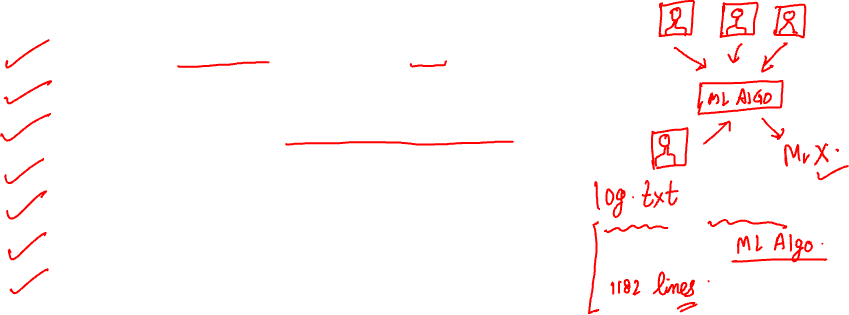 ML AlGO
Mr X.
log.txt
ML Algo.
1182 lines.